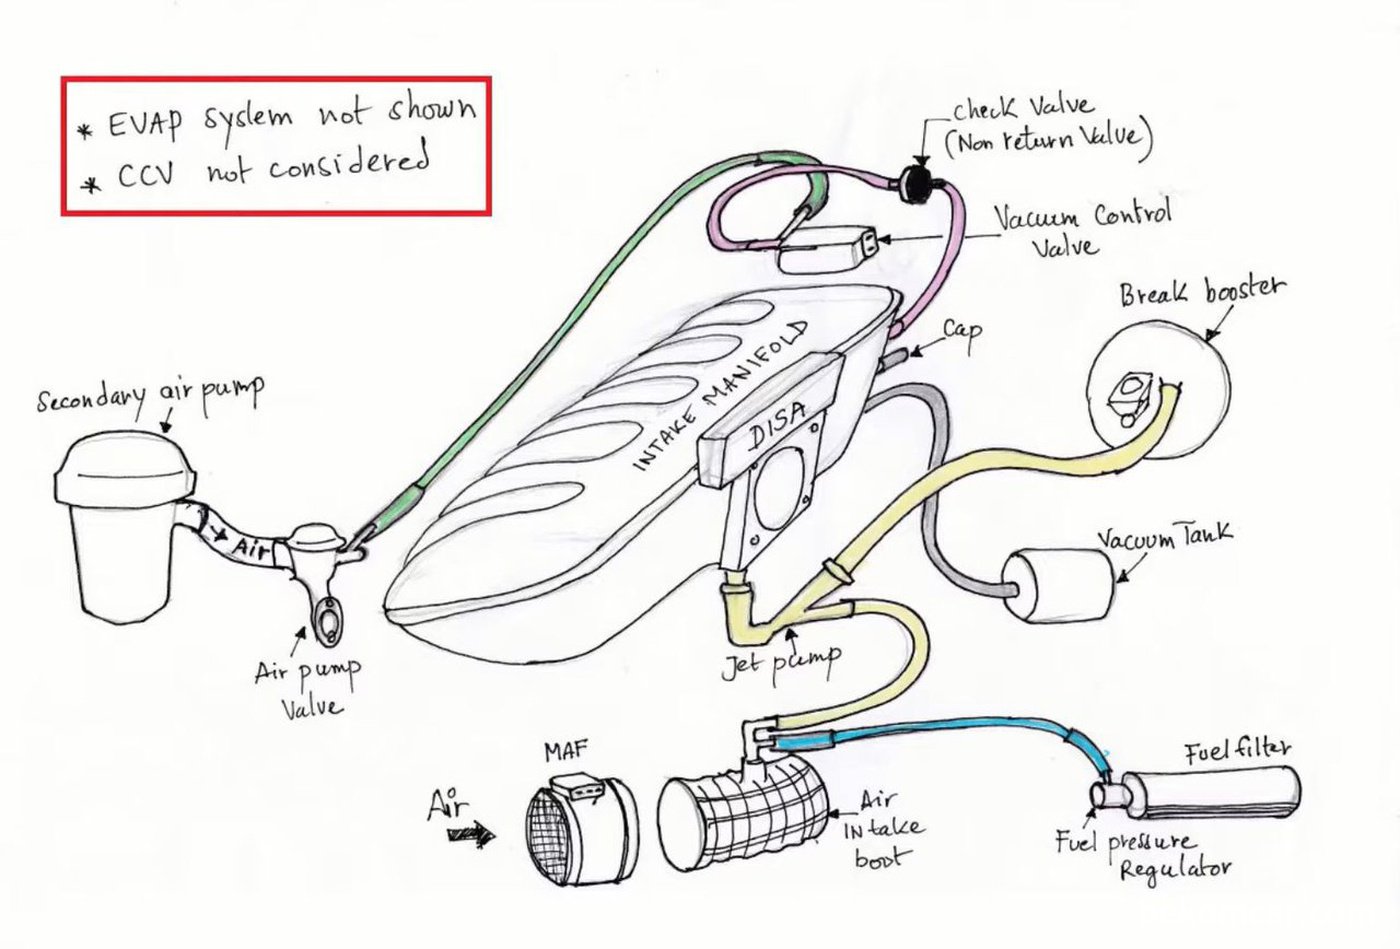 * EVAP system not shown
* CCV not considered
check Valve
(Non return Valve)
Vacuum Control
Valve
Break booster
Cap
Secondary air pump
INTAKE MANIFOLD
DISA
Air
Vacuum Tank
Air pump
Valve
Jet pump
MAF
Air
Fuel filter
Air
INtake
boot
Fuel pressure
Regulator